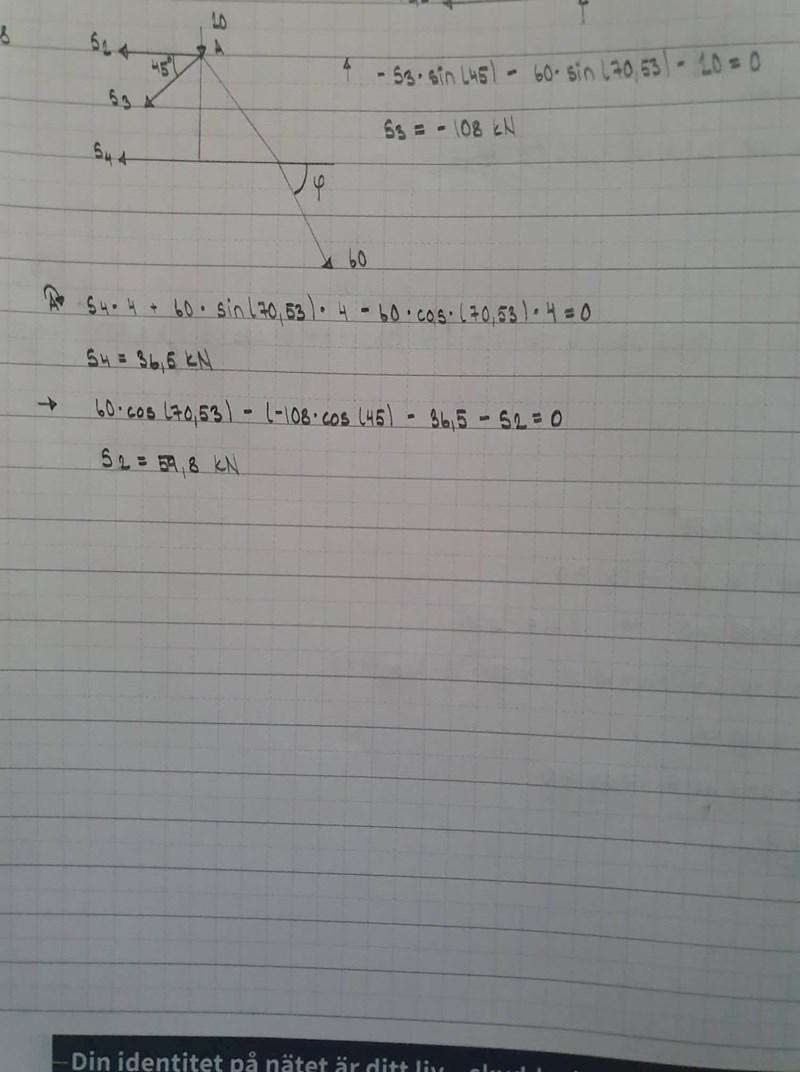 20
S2 A
45°
S3
S4
φ
60
↑ - S3 · sin(45) - 60 · sin(70,53) - 20 = 0
S3 = - 108 kN
A S4 · 4 + 60 · sin(70,53) · 4 - 60 · cos · (70,53) · 4 = 0
S4 = 36,5 kN
→ 60 · cos (70,53) - (-108 · cos (45) - 36,5 - S2 = 0
S2 = 59,8 kN
Din identitet på nätet är ditt liv